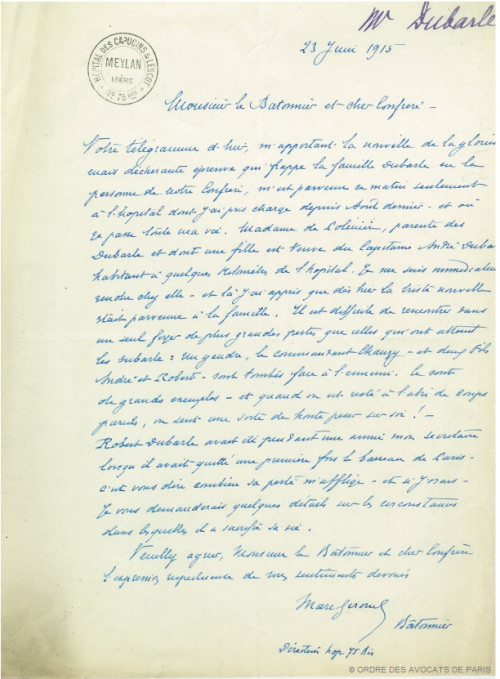 Mr Dubarle
23 Juin 1915
HÔPITAL DES CAPUCINS & LESCOT
MEYLAN
ISÈRE
N° 75 bis
Monsieur le Bâtonnier et cher Confrère -
Votre télégramme d'hier, m'apportant la nouvelle de la glorieu
mais déchirante épreuve qui frappe la famille Dubarle en la
personne de notre Confrère, m'est parvenu ce matin seulement
à l'hôpital dont j'ai pris charge depuis Août dernier - et où
se passe toute ma vie. Madame de parente des
Dubarle et dont une fille est veuve du Capitaine André Duba
habitant à quelques kilomètres de l'hôpital. Je me suis immédiate
rendu chez elle - et là j'ai appris que dès hier la triste nouvelle
était parvenue à la famille. Il est difficile de rencontrer dans
un seul foyer de plus grandes pertes que celles qui ont atteint
les Dubarle : un gendre, le commandant - et deux fils
André et Robert - sont tombés face à l'ennemi. Ce sont
de grands exemples - et quand on est resté à l'abri de coups
pareils, on sent une sorte de honte pour soi ! -
Robert Dubarle avait été pendant une année mon secrétaire
lorsqu'il avait quitté une première fois le barreau de Paris -
c'est vous dire combien sa perte m'afflige - et si j'osais -
Je vous demanderais quelques détails sur les circonstances
dans lesquelles il a sacrifié sa vie.
Veuillez agréer, Monsieur le Bâtonnier et cher Confrère
l'expression respectueuse de mes sentiments dévoués
Bâtonnier
Directeur hop. 75 bis
© ORDRE DES AVOCATS DE PARIS